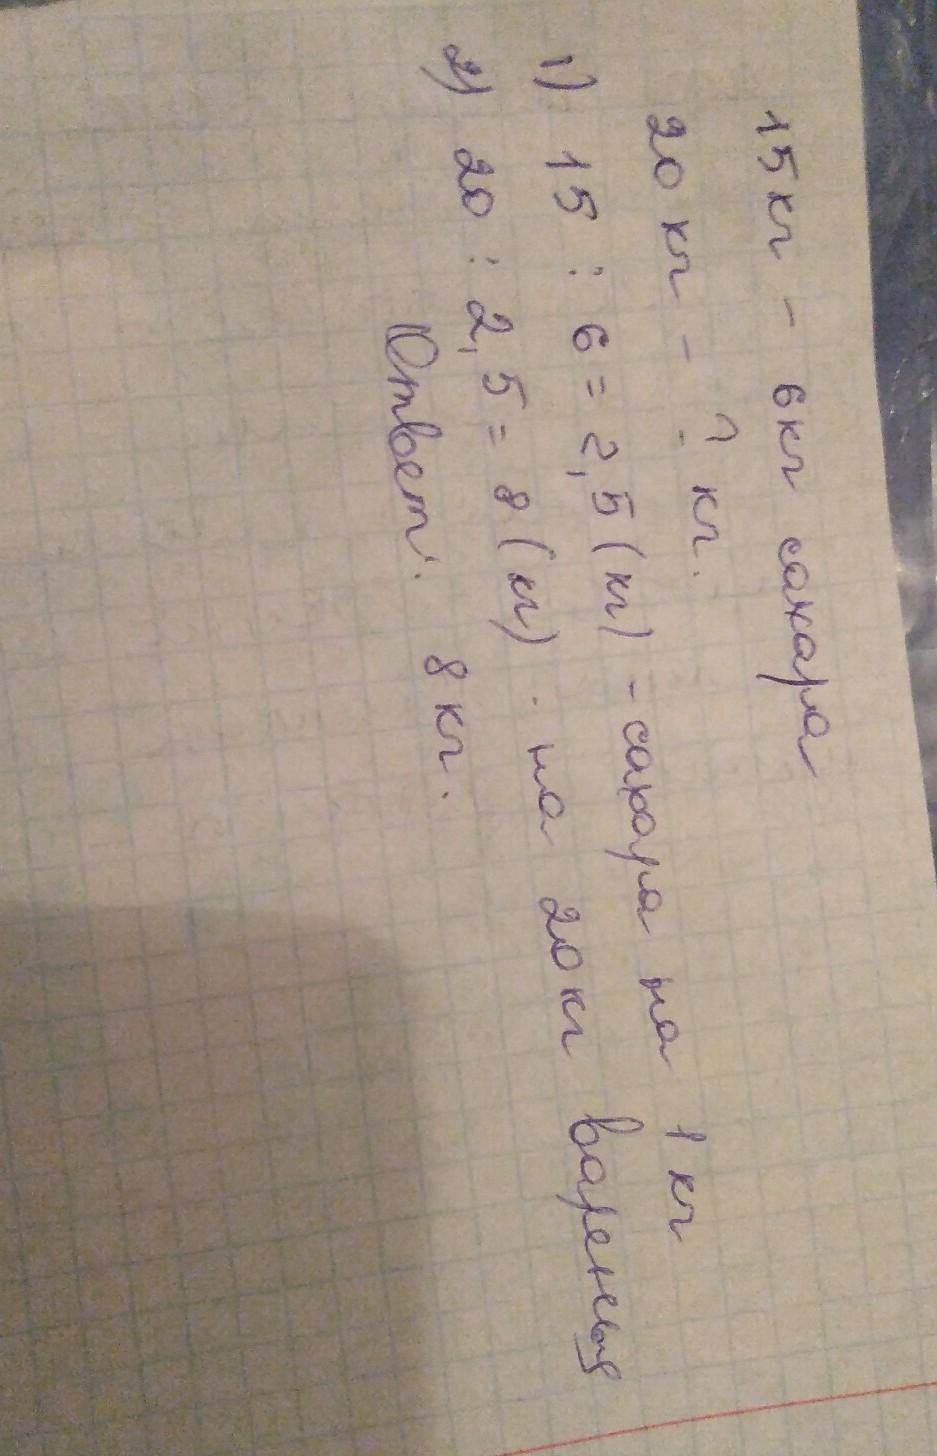 15кг - 6кг сахара
20 кг - ? кг.
1) 15 : 6 = 2,5 (кг) - сахара на 1 кг
2) 20 : 2,5 = 8 (кг) - на 20 кг варенья
Ответ: 8 кг.